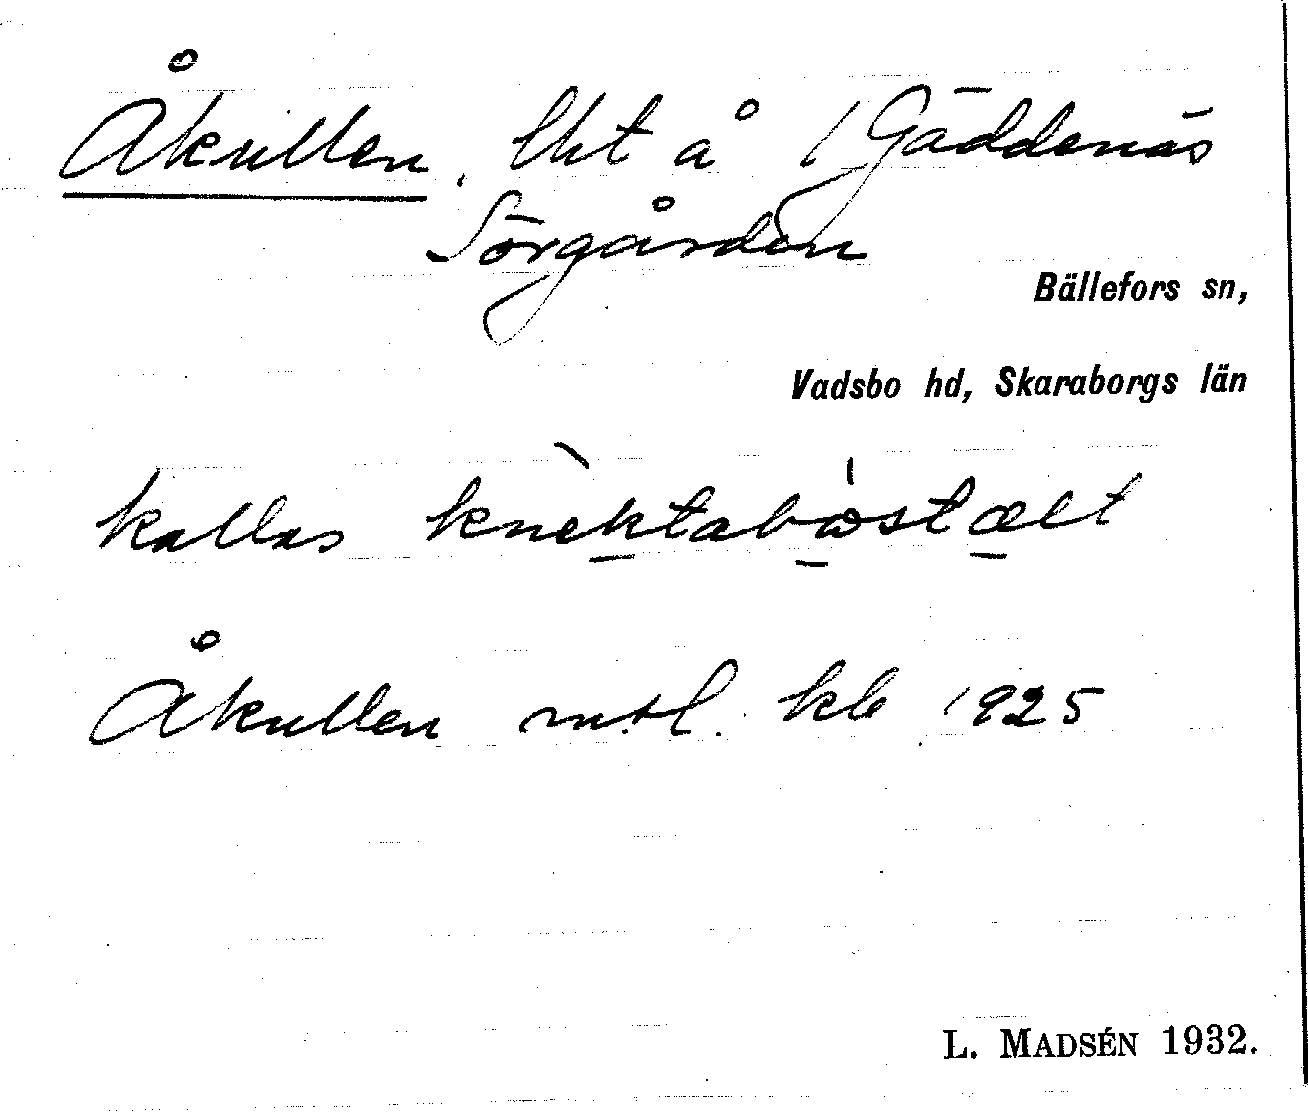 Åkullen, lht å 1 Gäddenäs
Sörgården
Bällefors sn,
Vadsbo hd, Skaraborgs län
kallas
Åkullen mtl. kb 1925
L. MADSÉN 1932.